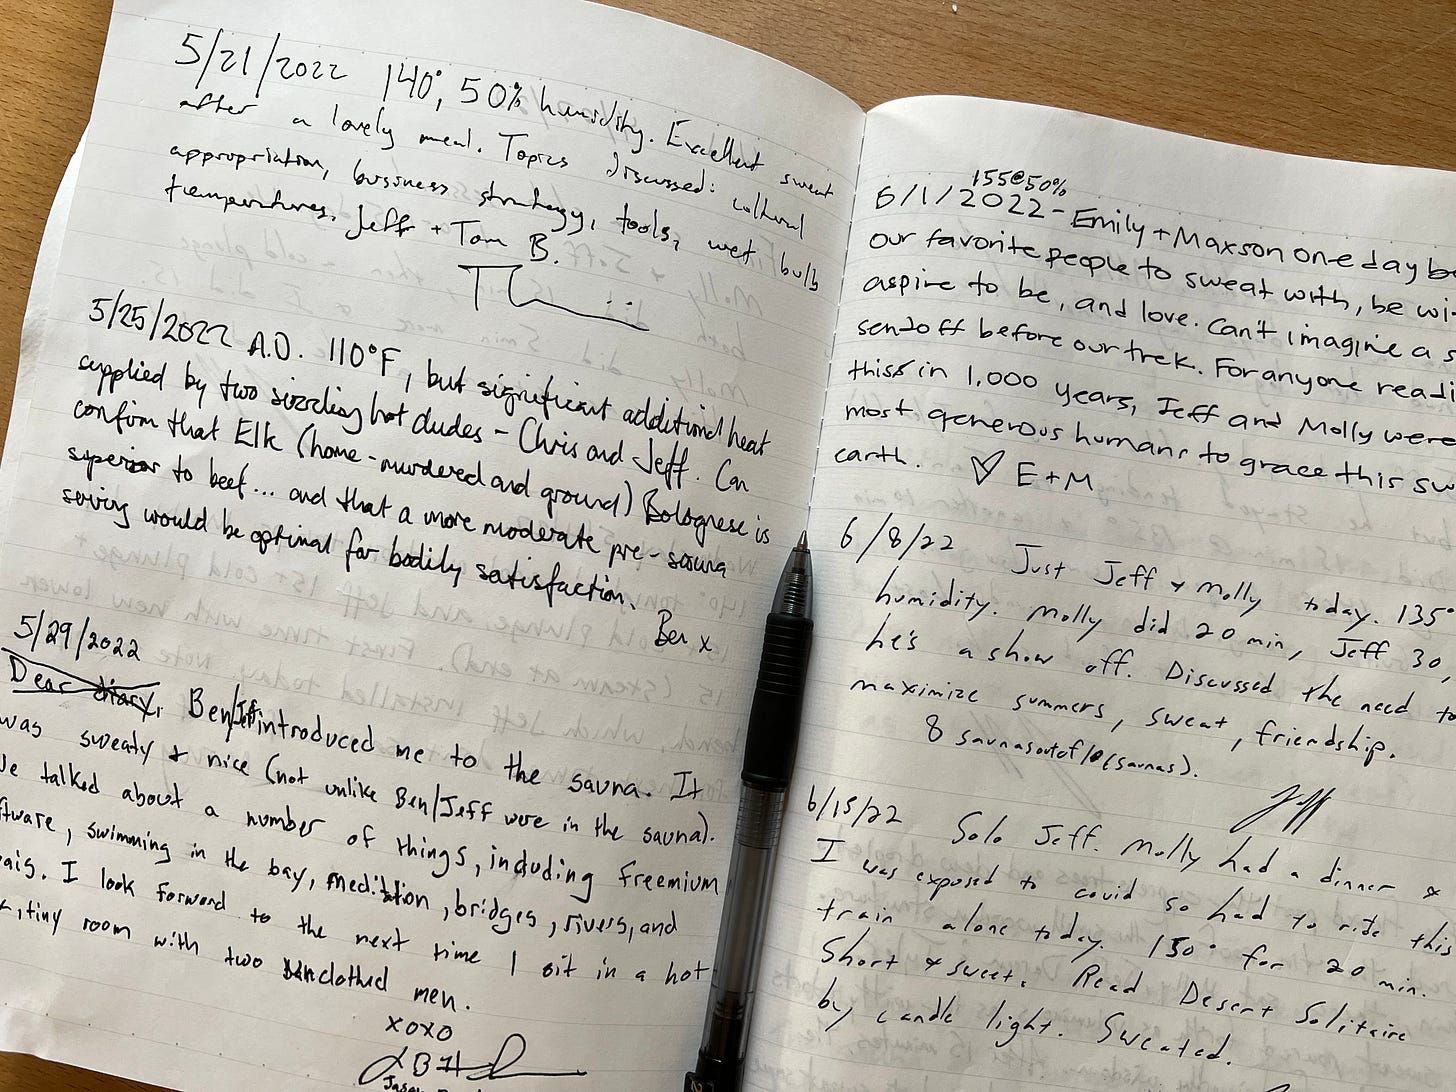 5/21/2022 140°, 50% humidity. Excellent sweat
after a lovely meal. Topics discussed: cultural
appropriation, business strategy, tools, wet bulb
temperatures. Jeff + Tom B.
5/25/2022 A.D. 110°F, but significant additional heat
supplied by two sizzling hot dudes - Chris and Jeff. Can
confirm that Elk (home-murdered and ground) Bolognese is
superior to beef... and that a more moderate pre-sauna
serving would be optimal for bodily satisfaction.
Ben x
5/29/2022
Dear diary, Ben/Jeff introduced me to the sauna. It
was sweaty & nice (not unlike Ben/Jeff were in the sauna).
We talked about a number of things, including freemium
software, swimming in the bay, meditation, bridges, rivers, and
I look forward to the next time I sit in a hot
tiny room with two unclothed men.
xoxo
155@50%
6/1/2022 - Emily + Maxson one day be
our favorite people to sweat with, be wi
aspire to be, and love. Can't imagine a s
sendoff before our trek. For anyone readi
this in 1,000 years, Jeff and Molly were
most generous humans to grace this sw
earth. ♡ E+M
6/8/22 Just Jeff & Molly today. 135°
humidity. Molly did 20 min, Jeff 30,
he's a show off. Discussed the need to
maximize summers, sweat, friendship.
8 saunas out of 10 (saunas).
Jeff
6/15/22 Solo Jeff. Molly had a dinner &
I was exposed to covid so had to ride this
train alone today. 150° for 20 min.
Short & sweet. Read Desert Solitaire
by candle light. Sweated.